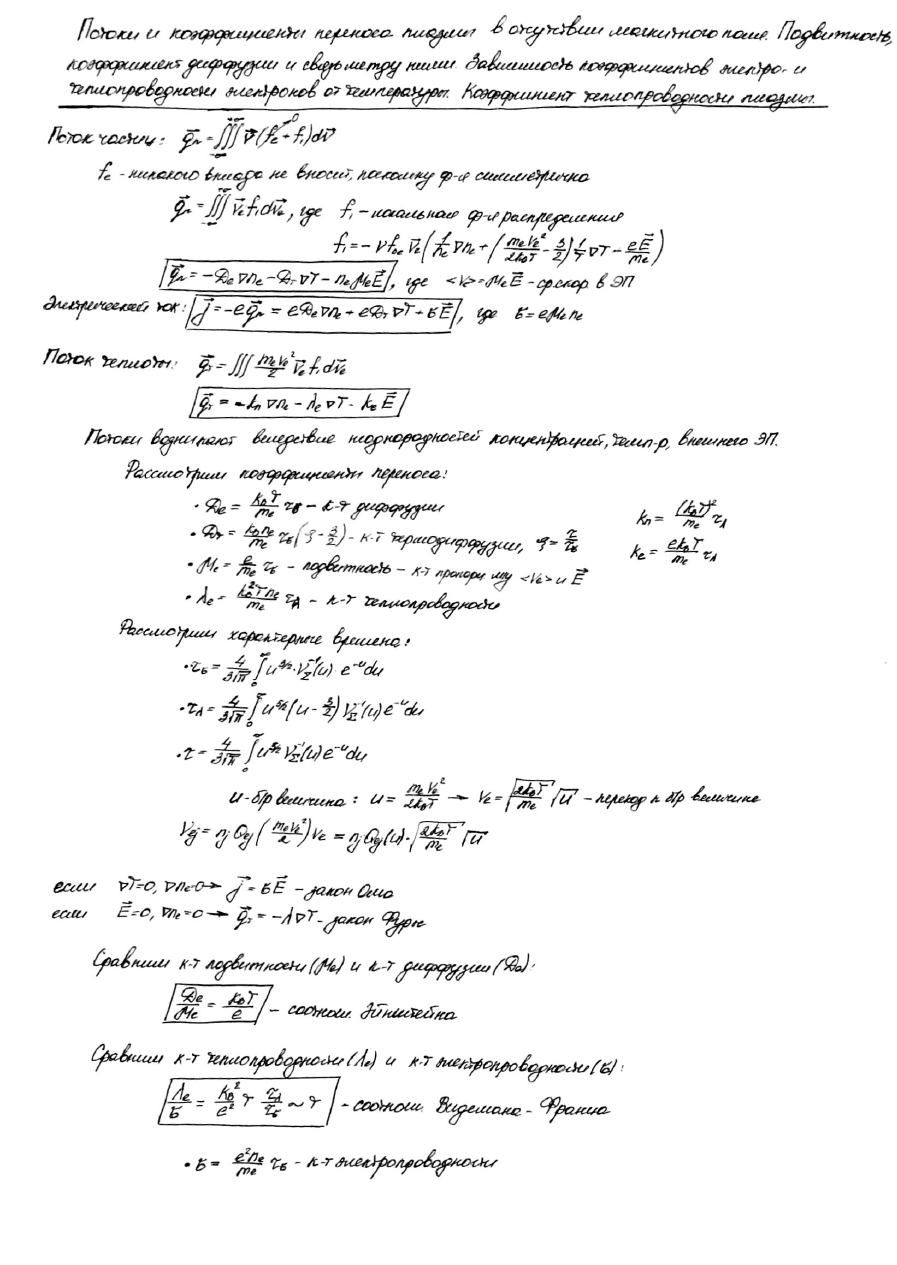 Потоки и коэффициенты переноса плазмы в отсутствии магнитного поля. Подвижность,
коэффициент диффузии и связь между ними. Зависимость коэффициентов электро- и
теплопроводности электронов от температуры. Коэффициент теплопроводности плазмы.
Поток частиц: q⃗ₙ = ∭ v⃗ (fₑ + f₁) dv⃗
fₑ - никакого вклада не вносит, поскольку ф-я симметрична
q⃗ₙ = ∭ v⃗ₑ f₁ dv⃗ₑ, где f₁ - локальная ф-я распределения
f₁ = -ν f₀ₑ v⃗ₑ (1/nₑ ∇nₑ + (mₑvₑ²/2k₀T - 3/2) 1/T ∇T - eE⃗/mₑ)
q⃗ₙ = -Dₑ∇nₑ - Dₜ∇T - nₑMₑE⃗, где <v> = MₑE⃗ - ср. скор. в ЭП
Электрический ток: j⃗ = -eq⃗ₙ = eDₑ∇nₑ + eDₜ∇T + бE⃗, где б = eMₑnₑ
Поток теплоты: q⃗ₜ = ∭ mₑvₑ²/2 v⃗ₑ f₁ dv⃗ₑ
q⃗ₜ = -kₙ∇nₑ - λₑ∇T - kₑE⃗
Потоки возникают вследствие неоднородностей концентраций, темп-р, внешнего ЭП.
Рассмотрим коэффициенты переноса:
• Dₑ = k₀T/mₑ τб - к-т диффузии
kₙ = (k₀T)²/mₑ τλ
• Dₜ = k₀nₑ/mₑ τб (ξ - 3/2) - к-т термодиффузии, ξ = τ/τб
kₑ = ek₀T/mₑ τλ
• Mₑ = e/mₑ τб - подвижность - к-т пропорц. м/у <vₑ> и E⃗
• λₑ = k₀²Tnₑ/mₑ τλ - к-т теплопроводности
Рассмотрим характерные времена:
• τб = 4/3√π ∫₀^∞ u^(3/2) · ν_Σ⁻¹(u) e⁻ᵘ du
• τλ = 4/3√π ∫₀^∞ u^(5/2) (u - 3/2) ν_Σ⁻¹(u) e⁻ᵘ du
• τ = 4/3√π ∫₀^∞ u^(5/2) ν_Σ⁻¹(u) e⁻ᵘ du
u - б/р величина: u = mₑvₑ²/2k₀T → vₑ = √(2k₀T/mₑ) √u - переход к б/р величине
νₑⱼ = nⱼQₑⱼ (mₑvₑ²/2) vₑ = nⱼQₑⱼ(u) · √(2k₀T/mₑ) √u
если ∇T=0, ∇nₑ=0 → j⃗ = бE⃗ - закон Ома
если E⃗=0, ∇nₑ=0 → q⃗ₜ = -λ∇T - закон Фурье
Сравним к-т подвижности (Mₑ) и к-т диффузии (Dₑ):
Dₑ/Mₑ = k₀T/e - соотнош. Эйнштейна
Сравним к-т теплопроводности (λₑ) и к-т электропроводности (б):
λₑ/б = k₀²/e² T τλ/τб ~ T - соотнош. Видемана - Франца
• б = e²nₑ/mₑ τб - к-т электропроводности